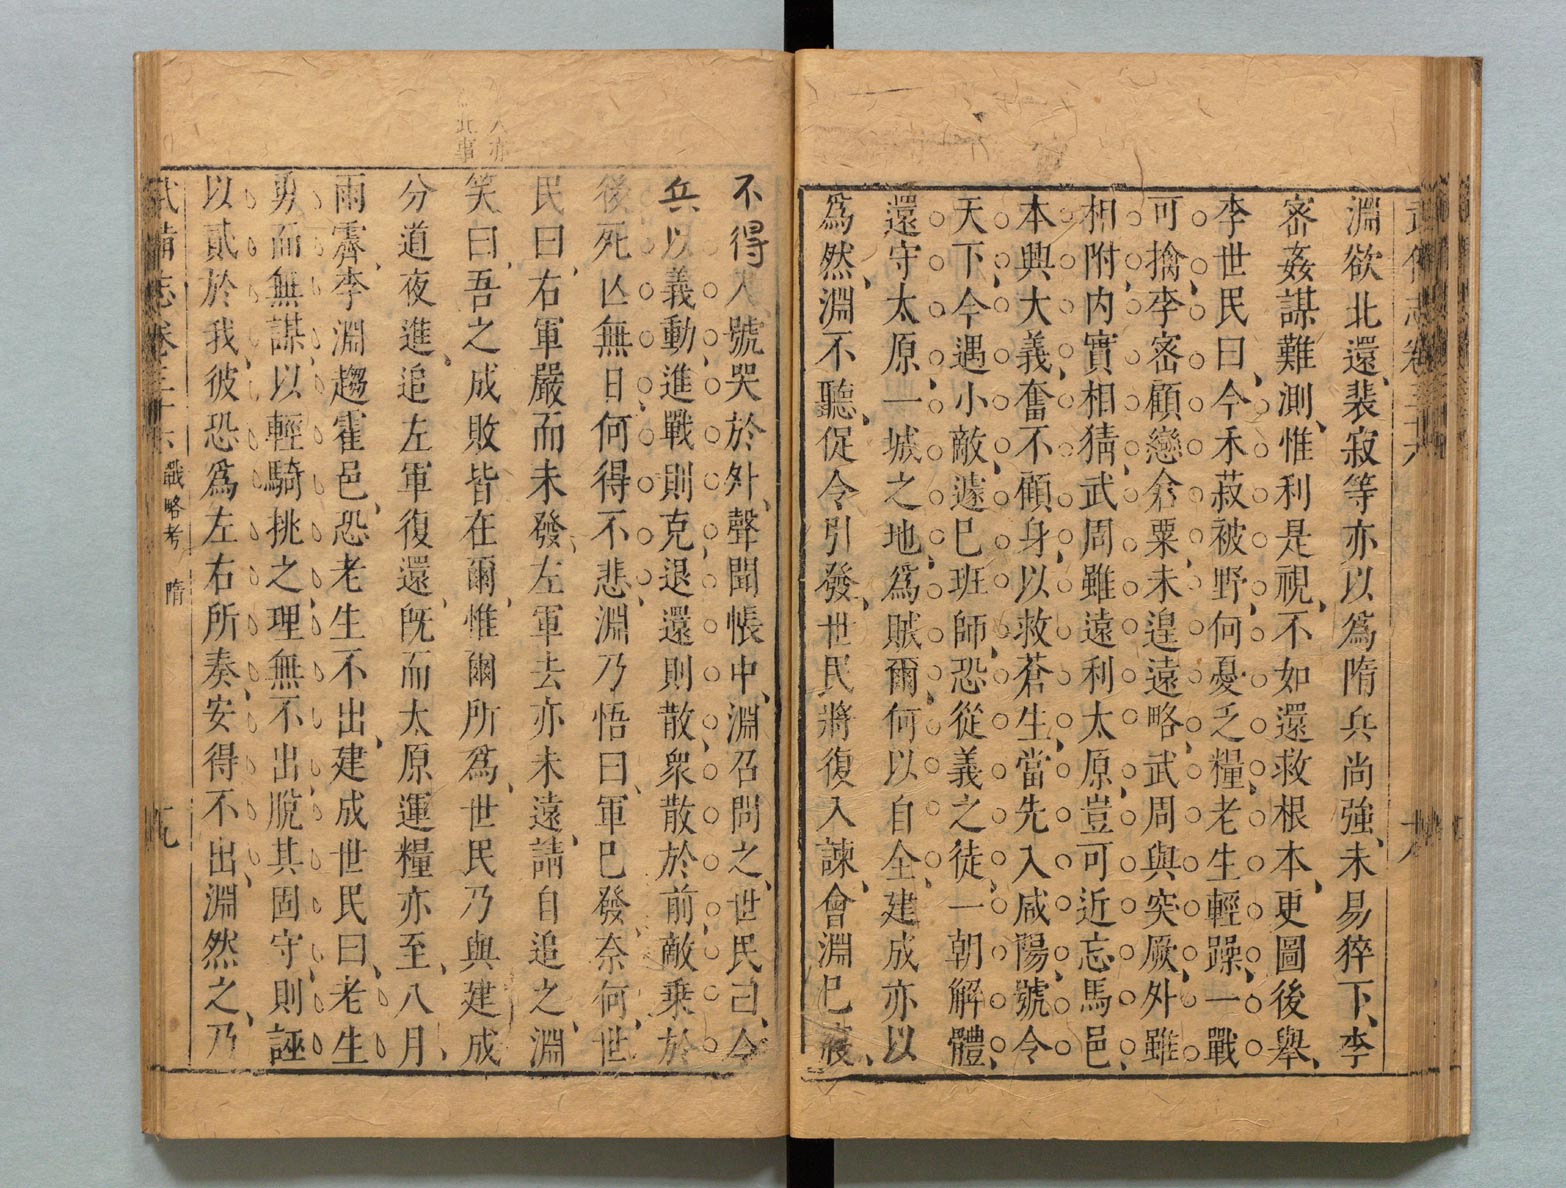 淵欲北還、裴寂等亦以爲隋兵尚強、未易猝下、李
密姦謀難測、惟利是視、不如還救根本、更圖後舉、
李世民曰、今禾菽被野、何憂乏糧、老生輕躁、一戰
可擒、李密顧戀倉粟、未遑遠略、武周與突厥、外雖
相附、内實相猜、武周雖遠利太原、豈可近忘馬邑、
本興大義、奮不顧身、以救蒼生、當先入咸陽、號令
天下、今遇小敵、遽已班師、恐從義之徒、一朝解體、
還守太原、一城之地、爲賊爾、何以自全、建成亦以
爲然、淵不聽、促令引發、世民將復入諫、會淵已寢、
不得入、號哭於外、聲聞帳中、淵召問之、世民曰、今
兵以義動、進戰則克、退還則散、衆散於前、敵乗於
後、死亾無日、何得不悲、淵乃悟曰、軍已發、奈何、世
民曰、右軍嚴而未發、左軍去亦未遠、請自追之、淵
笑曰、吾之成敗皆在爾、惟爾所爲、世民乃與建成
分道夜進、追左軍復還、既而太原運糧亦至、八月、
雨霽、李淵趨霍邑、恐老生不出、建成世民曰、老生
勇而無謀、以輕騎挑之、理無不出、脫其固守、則誣
以貳於我、彼恐爲左右所奏、安得不出、淵然之、乃
武備志卷三十六 戰略考 隋 十九